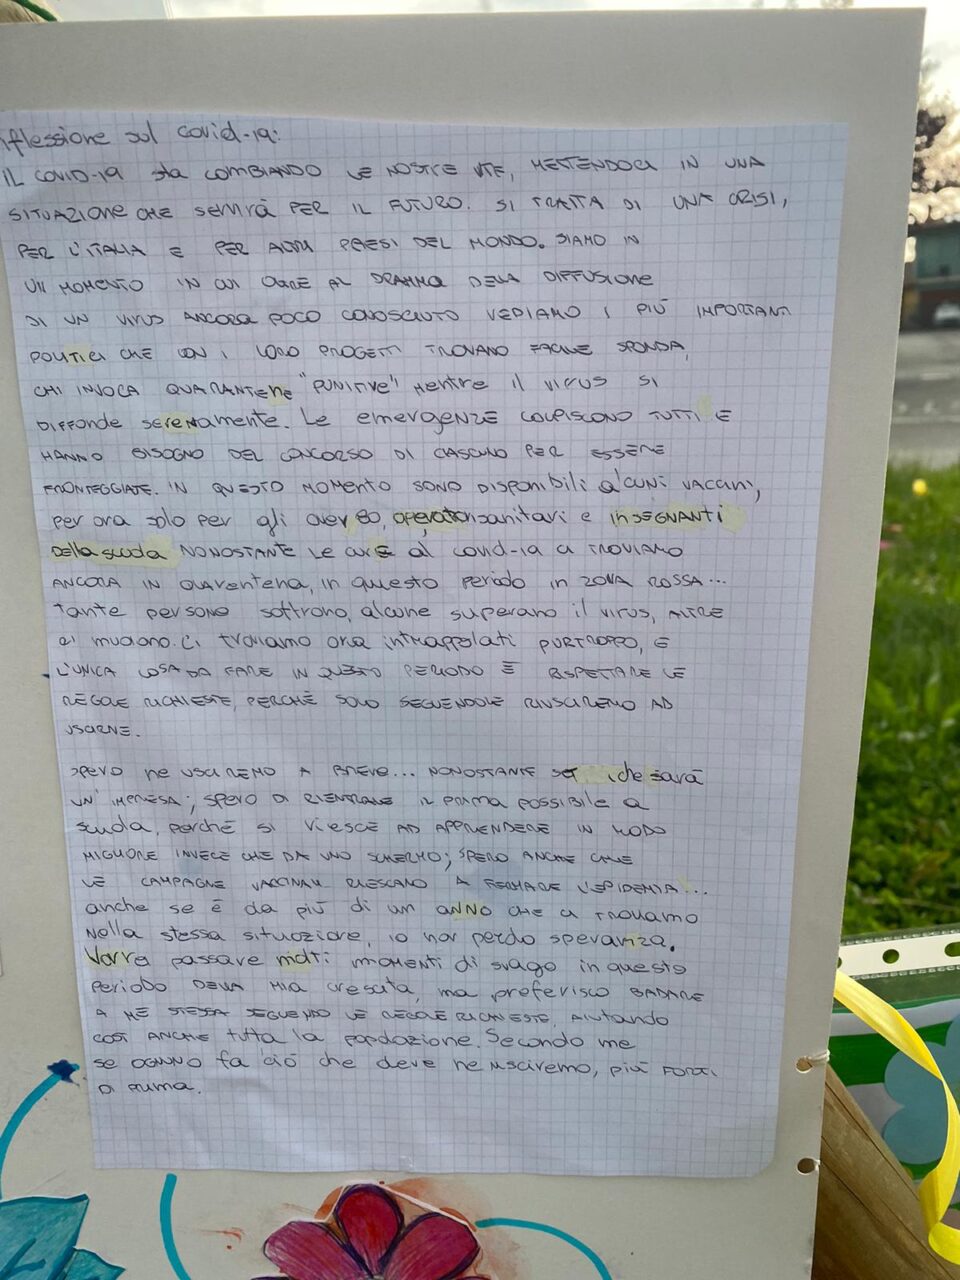 flessione sul covid-19:
IL COVID-19 sta CAMBIANDO LE NOSTRE VITE, METTENDOCI IN UNA
SITUAZIONE CHE servirà PER IL FUTURO. SI TRATTA DI UNA CRISI,
PER L'ITALIA E PER ALTRI PAESI DEL MONDO. SIAMO IN
UN MOMENTO IN CUI OLTRE AL DRAMMA DELLA DIFFUSIONE
DI UN VIRUS ANCORA POCO CONOSCIUTO VEDIAMO I PIÙ IMPORTANTI
POLITICI CHE CON I LORO PROGETTI TROVANO FACILE SPONDA,
CHI INVOCA QUARANTENE "PUNITIVE" mentre il VIRUS SI
DIFFONDE serenamente. Le emergenze COLPISCONO TUTTI E
HANNO BISOGNO DEL CONCORSO DI CIASCUNO PER ESSERE
FRONTEGGIATE. IN QUESTO MOMENTO SONO DISPONIBILI alcuni VACCINI,
per ora solo per gli over 80, operatori sanitari e INSEGNANTI
della scuola NONOSTANTE LE CURE al covid-19 CI TROVIAMO
ANCORA IN Quarentena, in questo periodo in ZONA ROSSA...
tante persone soffrono, alcune superano il VIRUS, ALTRE
ci muoiono. Ci troviamo ora intrappolati PURTROPPO, E
L'UNICA COSA DA FARE IN QUESTO PERIODO È RISPETTARE LE
REGOLE RICHIESTE, PERCHÉ SOLO SEGUENDOLE RIUSCIREMO AD
USCIRNE.
Spero ne USCIREMO A BREVE... NONOSTANTE che sarà
UN'IMPRESA; SPERO DI RIENTRARE IL PRIMA POSSIBILE a
scuola, perché si riesce AD APPRENDERE IN MODO
MIGLIORE INVECE CHE DA UNO SCHERMO; SPERO ANCHE CHE
LE CAMPAGNE VACCINALI RIESCANO A FERMARE L'EPIDEMIA...
anche se è da più di un ANNO CHE CI TROVIAMO
Nella stessa situazione, io non perdo speranza.
Vorrei passare molti momenti di svago in questo
Periodo DELLA MIA crescita, ma preferisco BADARE
A ME STESSA SEGUENDO LE REGOLE RICHIESTE, AIUTANDO
COSÌ ANCHE tutta la popolazione. Secondo me
se OGNUNO fa ciò che deve ne usciremo, più FORTI
DI PRIMA.